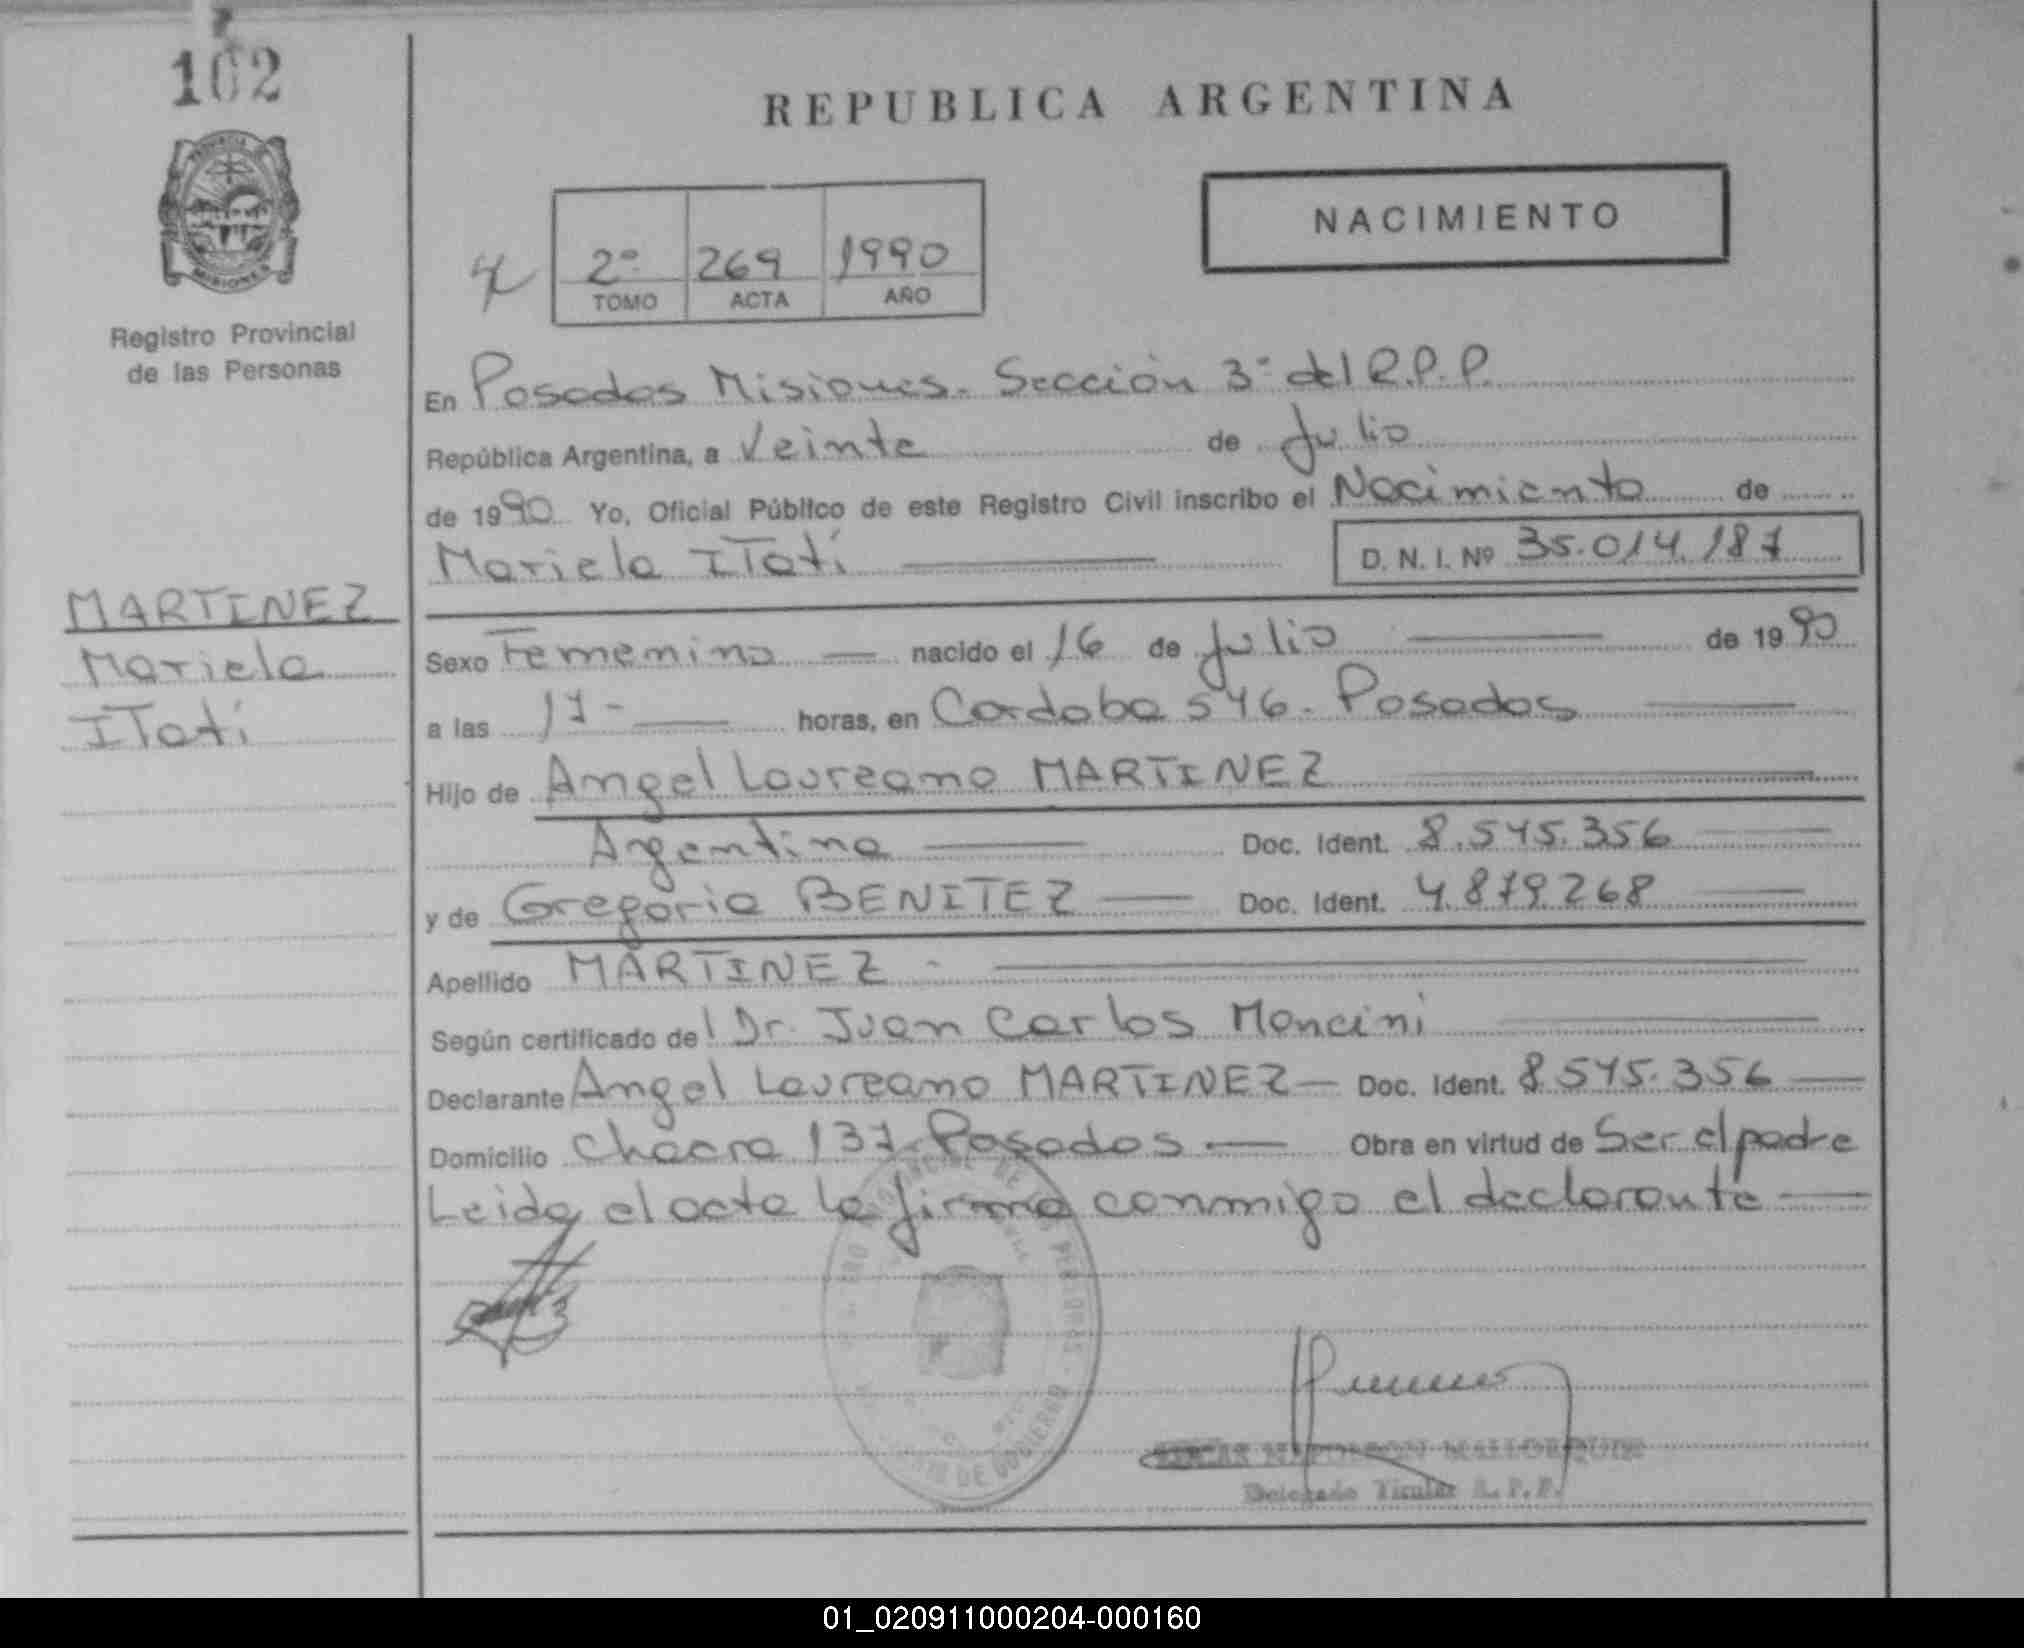 102
REPUBLICA ARGENTINA
PROVINCIA
MISIONES
Registro Provincial
de las Personas
2º 269 1990
TOMO ACTA AÑO
NACIMIENTO
En Posadas Misiones. Sección 3º del R.P.P.
República Argentina, a Veinte de Julio
de 1990 Yo, Oficial Público de este Registro Civil inscribo el Nacimiento de
Mariela ITatí D. N. I. Nº 35.014.187
MARTINEZ
Mariela
ITatí
Sexo Femenino nacido el 16 de Julio de 1990
a las 17- horas, en Cordoba 546. Posadas
Hijo de Angel Laureano MARTINEZ
Argentina Doc. Ident. 8.545.356
y de Gregoria BENITEZ Doc. Ident. 4.879.268
Apellido MARTINEZ -
Según certificado del Dr. Juan Carlos Mancini
Declarante Angel Laureano MARTINEZ Doc. Ident. 8.545.356
Domicilio Chacra 137. Posadas Obra en virtud de Ser el padre
Leida el acta la firma conmigo el declarante
DE GOBIERNO
NAPOLEON MALLORQUIN
Delegado Titular R. P. P.
01_020911000204-000160